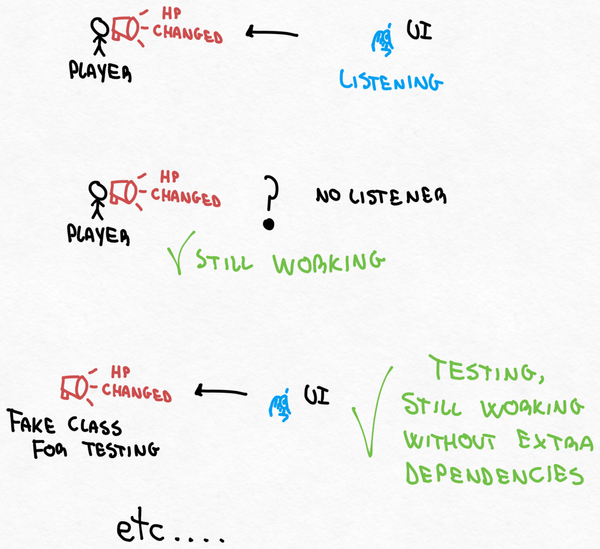 HP
CHANGED
UI
PLAYER
LISTENING
HP
CHANGED
?
NO LISTENER
PLAYER
√ STILL WORKING
HP
CHANGED
UI
FAKE CLASS
FOR TESTING
√ TESTING,
STILL WORKING
WITHOUT EXTRA
DEPENDENCIES
etc....